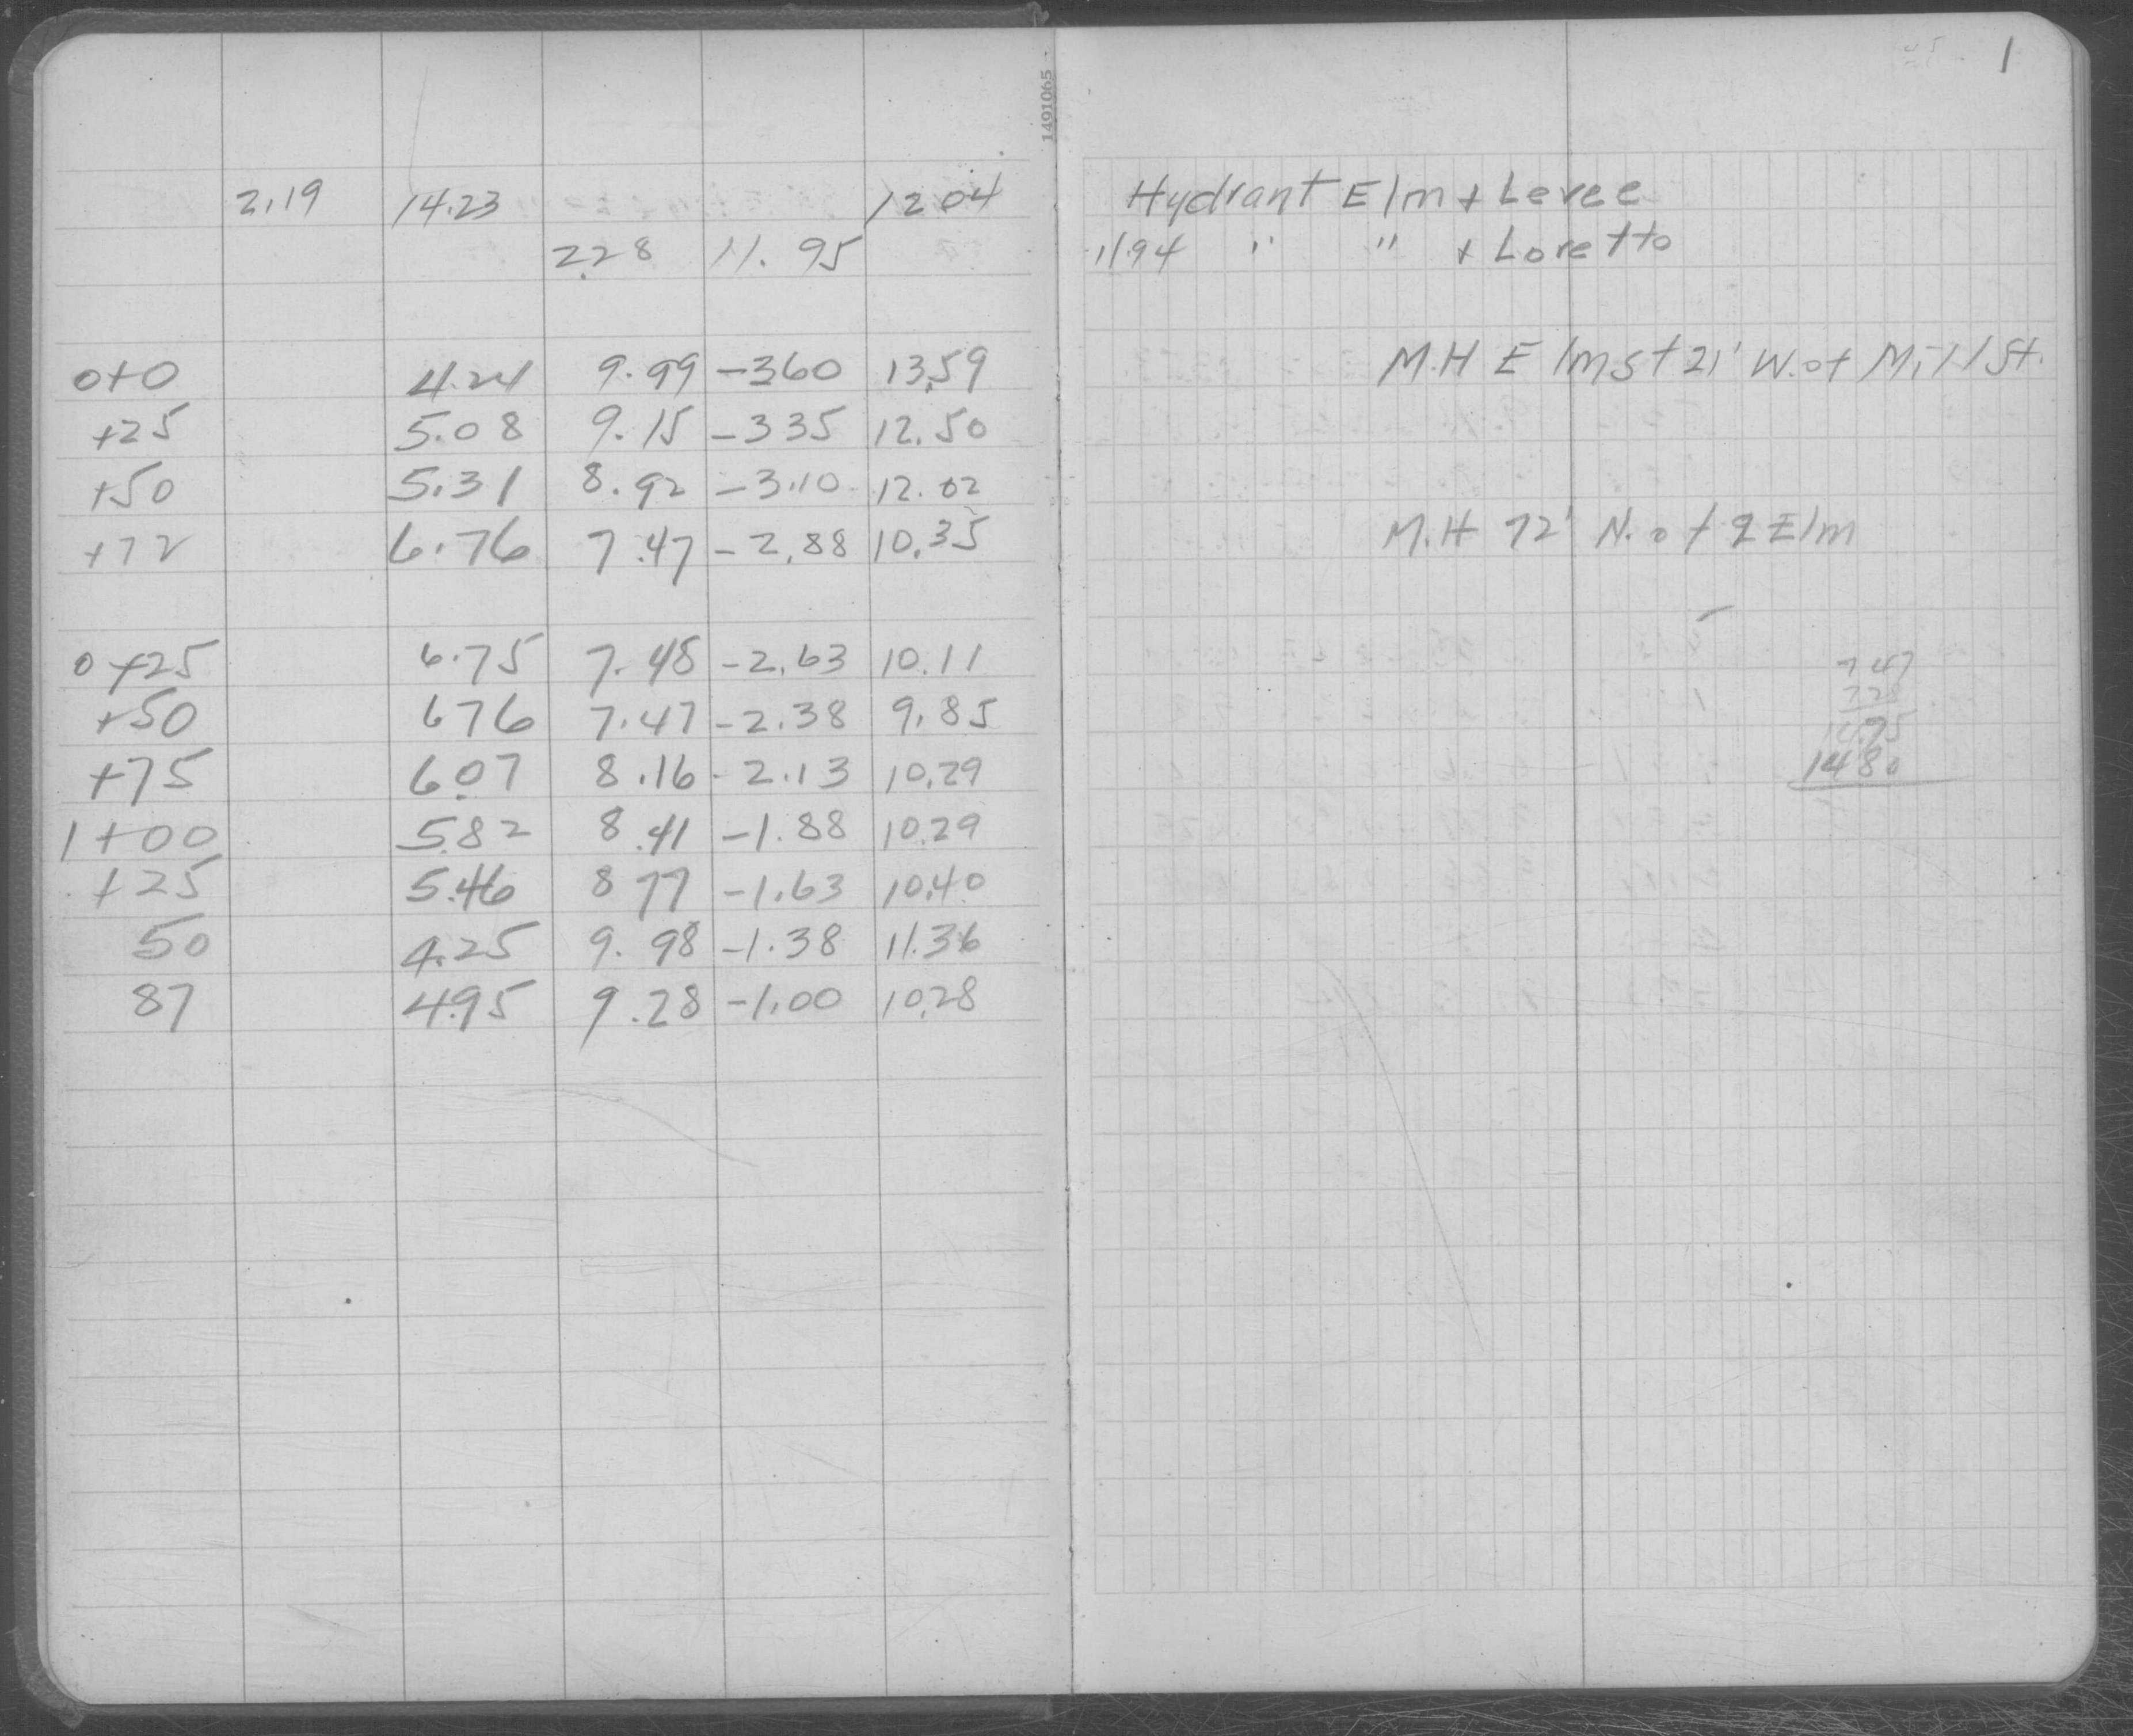 1
1491065
2.19 14.23 12 04 Hydrant Elm + Levee
2.28 11.95 11.94 " " + Loretto
0+0 4.24 9.99 -360 13.59 M.H Elm St 21' W. of Mill St.
+25 5.08 9.15 -335 12.50
+50 5.31 8.92 -3.10 12.02
+72 6.76 7.47 -2.88 10.35 M.H 72' N. of ℄ Elm
0+25 6.75 7.48 -2.63 10.11
+50 676 7.47 -2.38 9.85
+75 6.07 8.16 -2.13 10.29
1+00 5.82 8.41 -1.88 10.29
+25 5.46 8 77 -1.63 10.40
50 4.25 9.98 -1.38 11.36
87 4.95 9.28 -1.00 10.28
7 47
1480